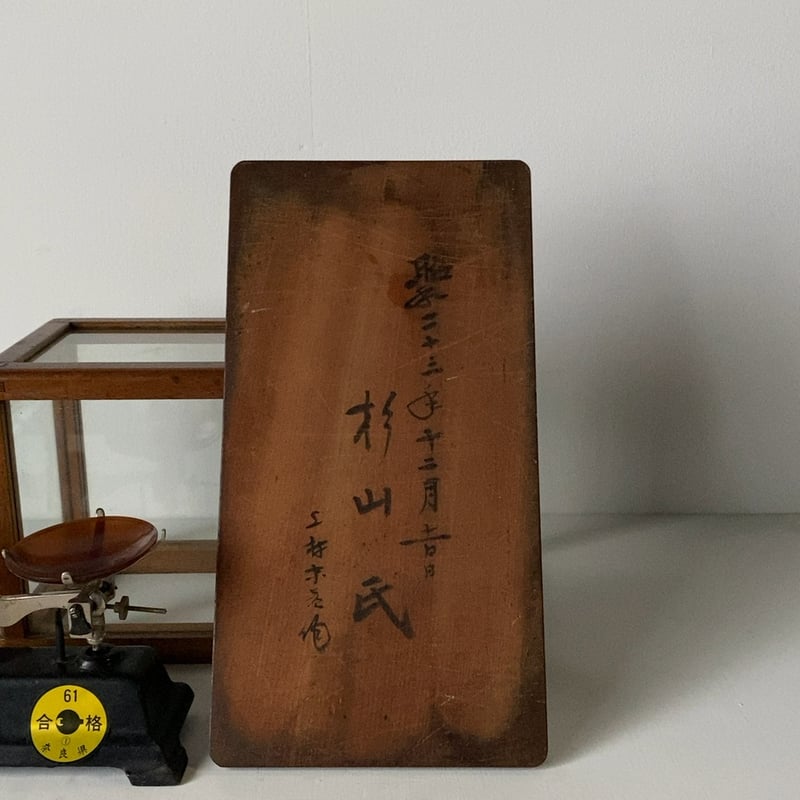 昭和二十三年十二月吉日
杉山氏
作
61
合格
奈良県